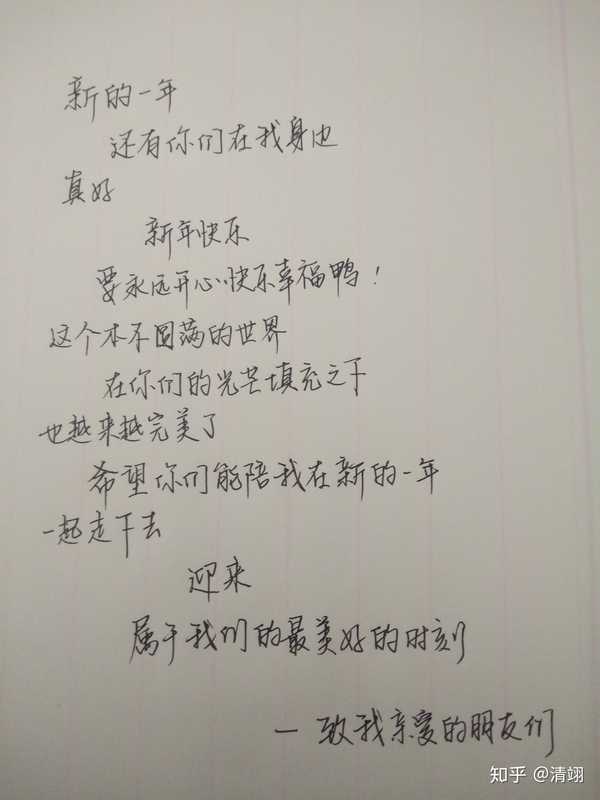 新的一年
还有你们在我身边
真好
新年快乐
要永远开心快乐幸福鸭！
这个本不圆满的世界
在你们的光芒填充之下
也越来越完美了
希望你们能陪我在新的一年
一起走下去
迎来
属于我们的最美好的时刻
— 致我亲爱的朋友们
知乎 @清翊